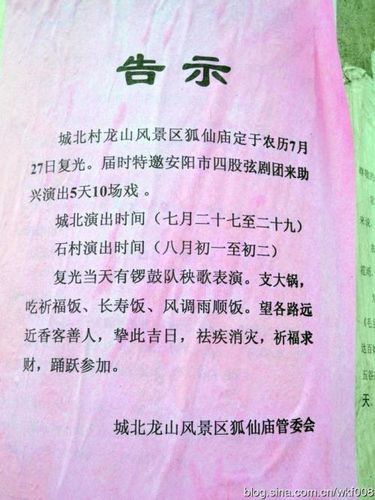 告示
城北村龙山风景区狐仙庙定于农历7月
27日复光。届时特邀安阳市四股弦剧团来助
兴演出5天10场戏。
城北演出时间（七月二十七至二十九）
石村演出时间（八月初一至初二）
复光当天有锣鼓队秧歌表演。支大锅，
吃祈福饭、长寿饭、风调雨顺饭。望各路远
近香客善人，挚此吉日，祛疾消灾，祈福求
财，踊跃参加。
城北龙山风景区狐仙庙管委会
blog.sina.com.cn/wkf008